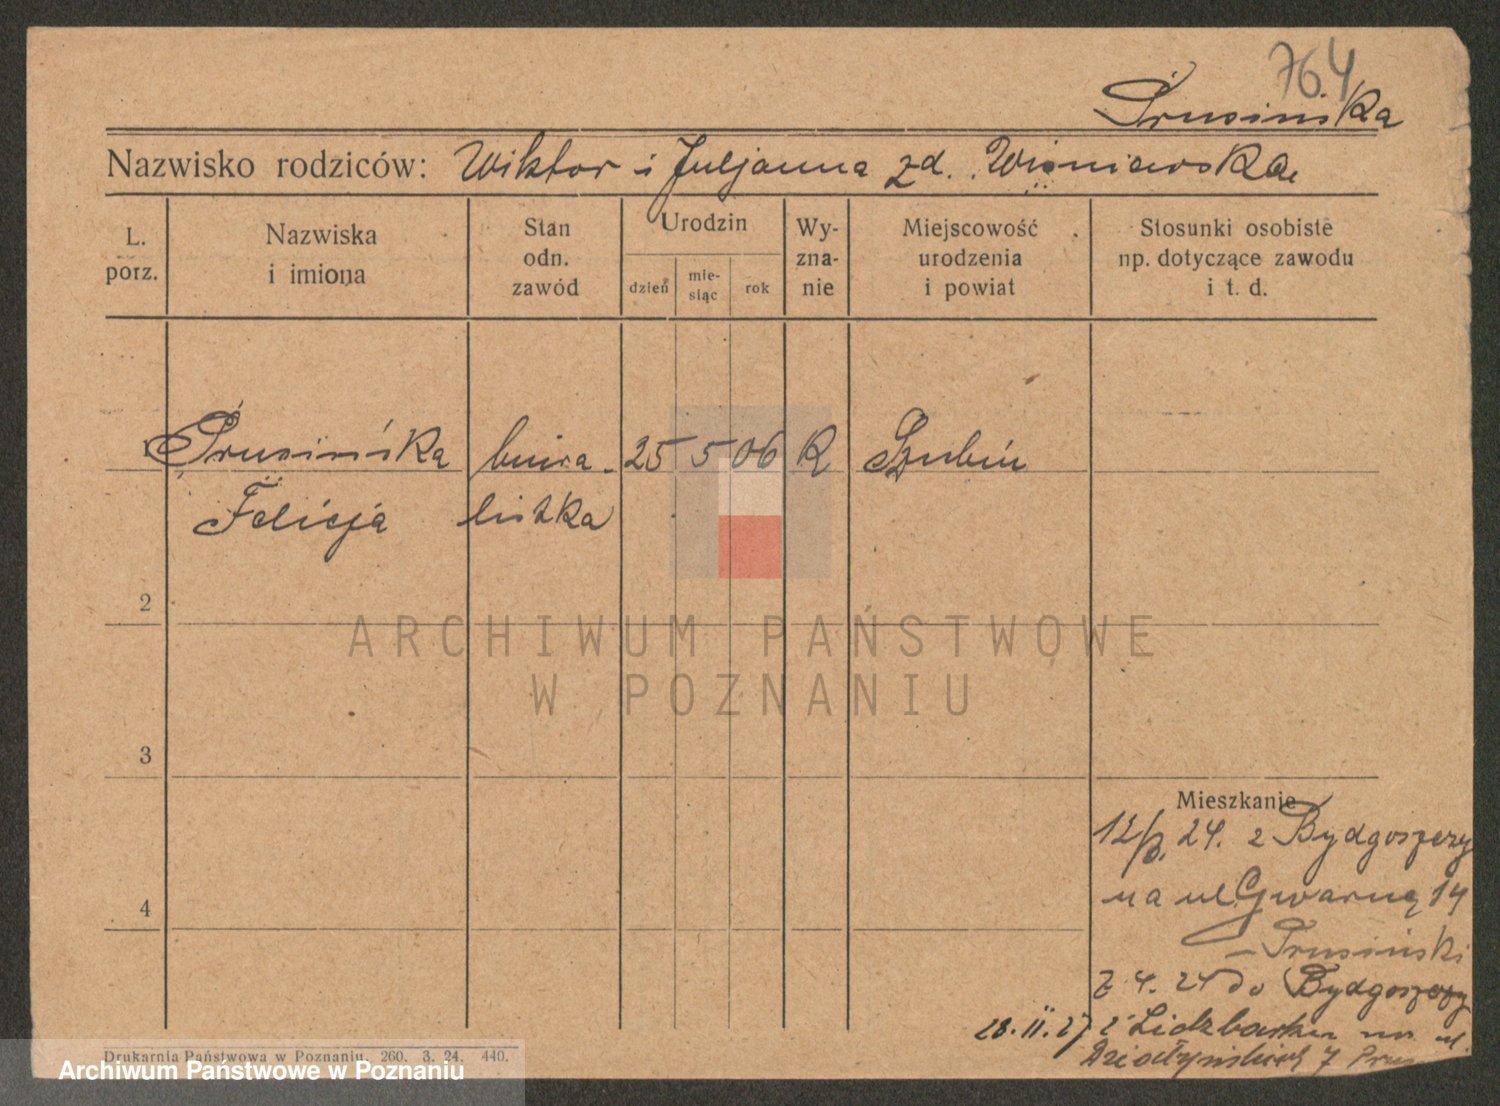 764
Prusińska
Nazwisko rodziców: Wiktor i Juljanna zd. Wiśniewska
L. porz.
Nazwiska i imiona
Stan odn. zawód
Urodzin
dzień
mie-siąc
rok
Wy-zna-nie
Miejscowość urodzenia i powiat
Stosunki osobiste np. dotyczące zawodu i t. d.
1 Prusińska biura- 25 5 06 R Szubin
Felicja listka
2
3
4
Mieszkanie
12/3. 24. z Bydgoszczy
na ul. Gwarną 14
– Prusiński
7. 4. 24 do Bydgoszczy
28. II. 27 z Lidzbarka na ul.
Działyńskich 7
Drukarnia Państwowa w Poznaniu. 260. 3. 24. 440.
ARCHIWUM PAŃSTWOWE
W POZNANIU
Archiwum Państwowe w Poznaniu